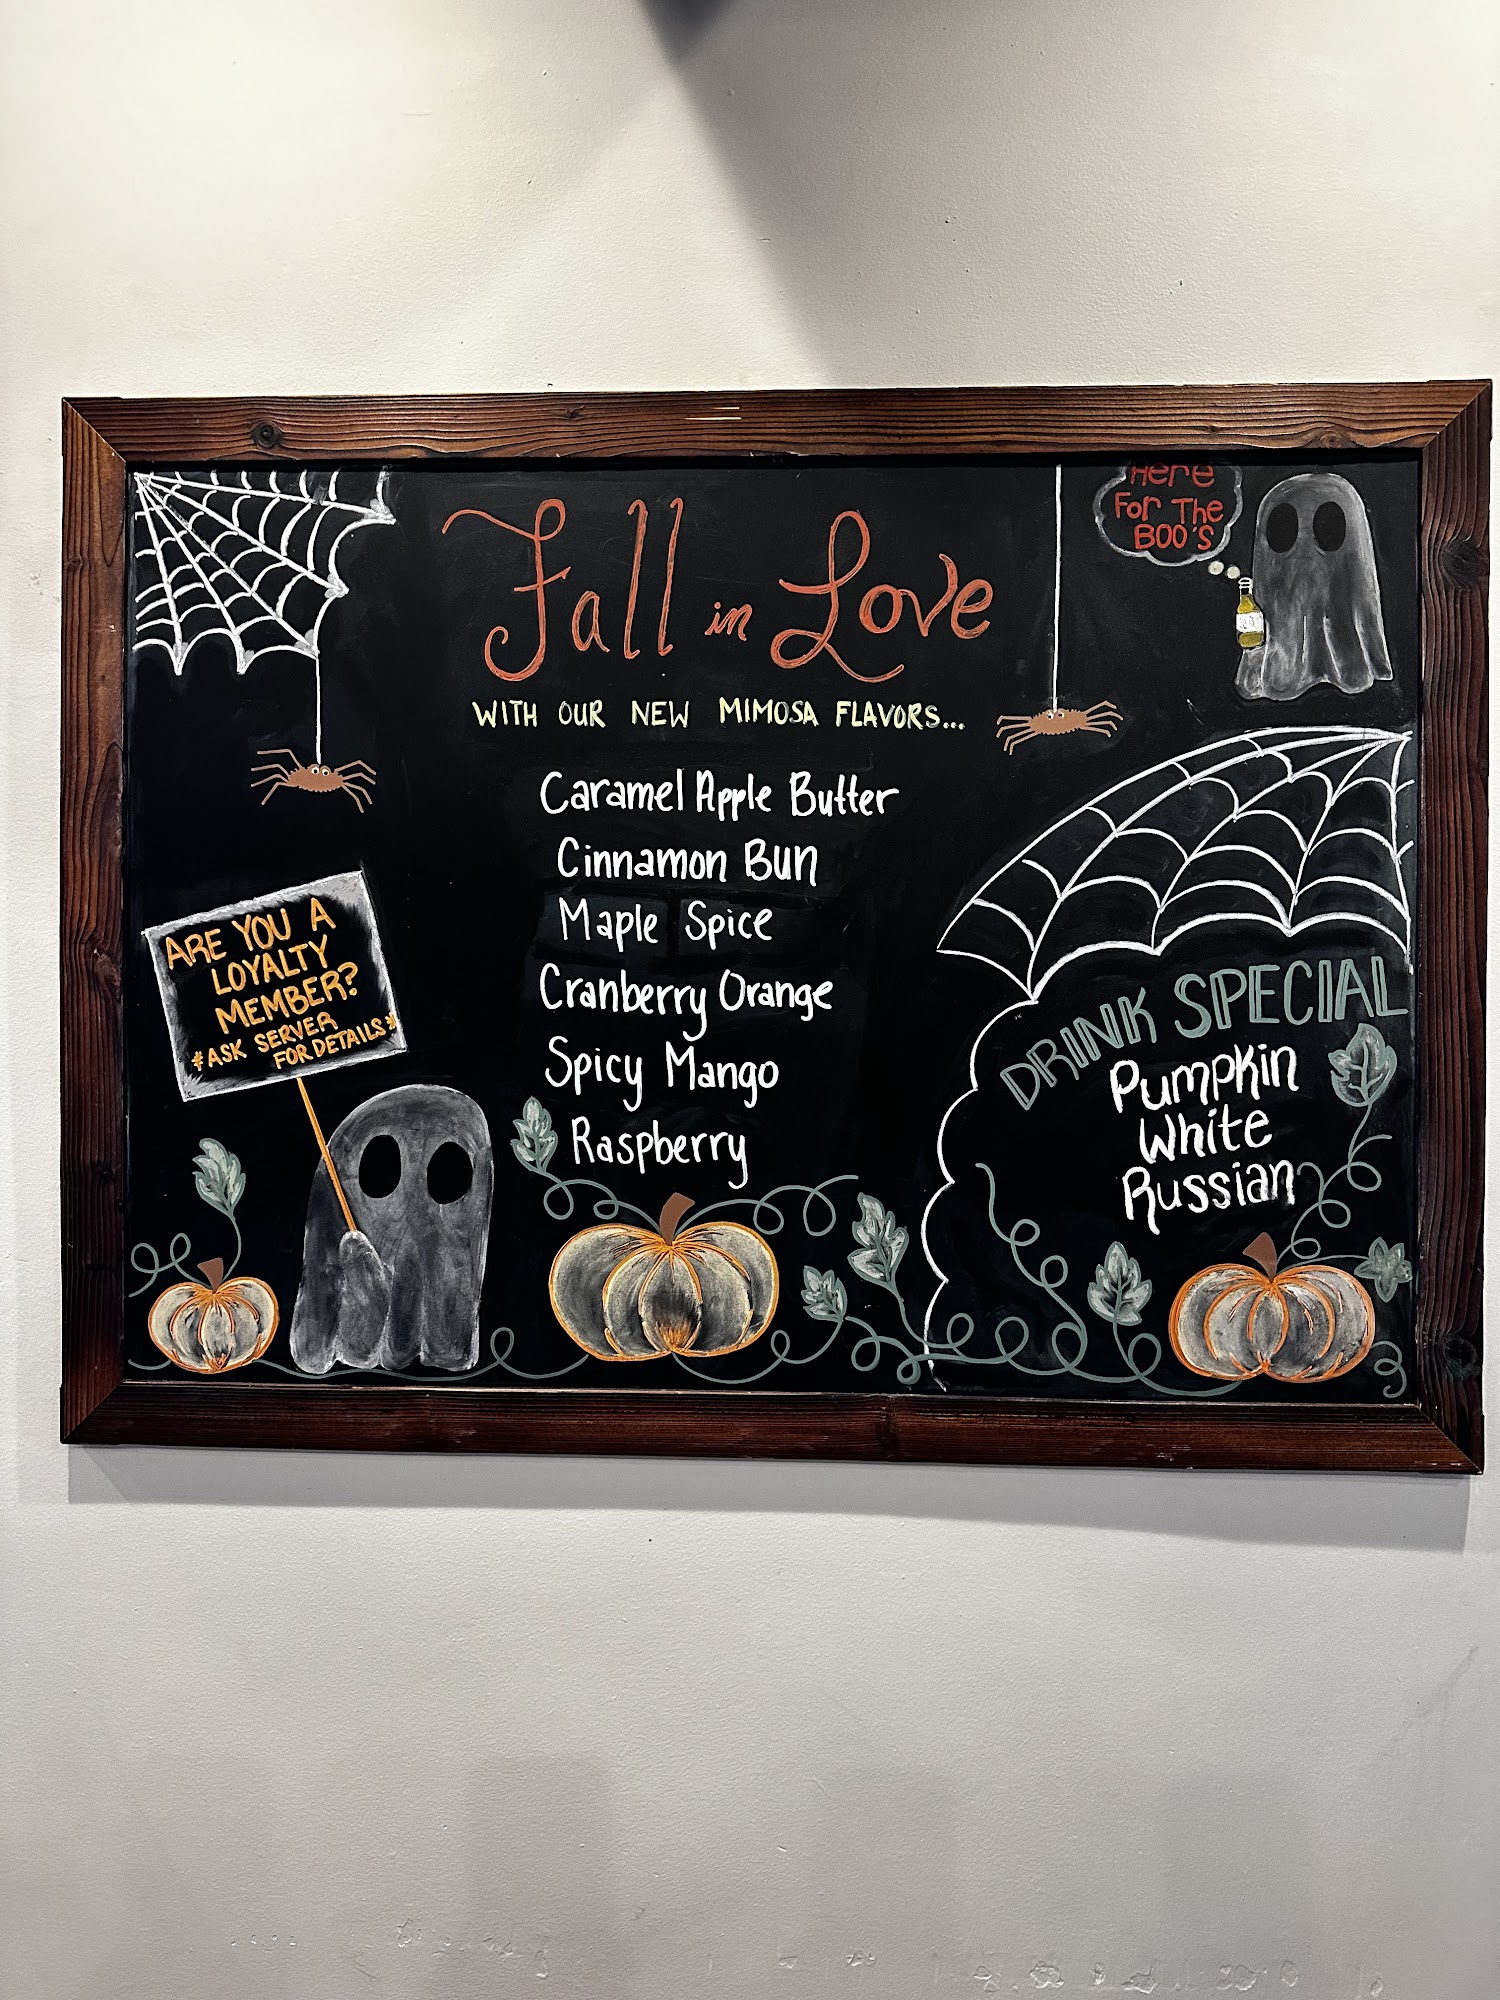 Here
For The
BOO'S
Fall in Love
WITH OUR NEW MIMOSA FLAVORS...
Caramel Apple Butter
Cinnamon Bun
Maple Spice
Cranberry Orange
Spicy Mango
Raspberry
ARE YOU A
LOYALTY
MEMBER?
*ASK SERVER
FOR DETAILS*
DRINK SPECIAL
Pumpkin
White
Russian